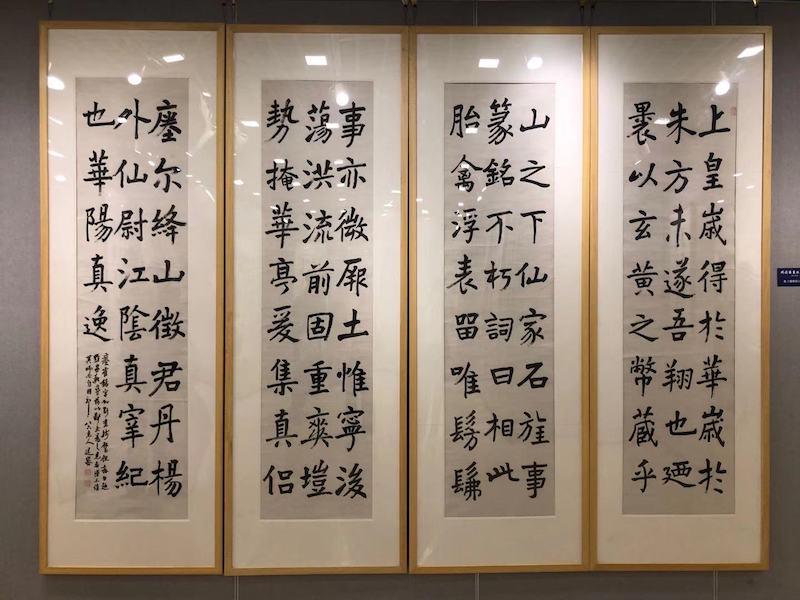 上皇嵗得於華嵗於
朱方未遂吾翔也廼
裹以玄黃之幣藏乎
山之下仙家石旌事
篆銘不朽詞曰相此
胎禽浮表留唯髣髴
事亦微厥土惟寧後
蕩洪流前固重爽塏
勢掩華亭爰集真侶
瘞尔絳山徵君丹楊
外仙尉江陰真宰紀
也華陽真逸